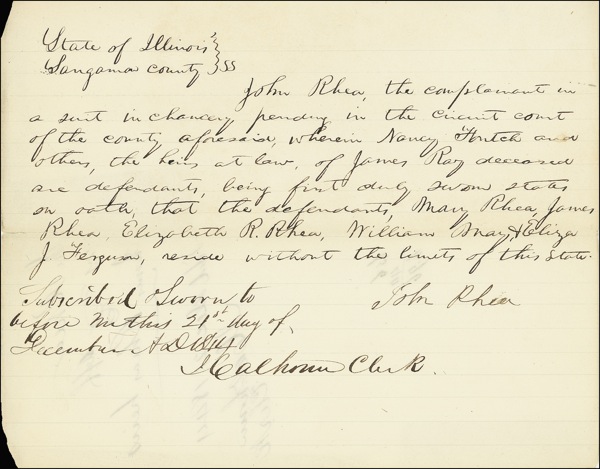 State of Illinois
Sangamo county } SS
John Rhea, the complainant in
a suit in chancery pending in the circuit court
of the county aforesaid, wherein Nancy and
others, the heirs at law, of James Ray deceased
are defendants, being first duly sworn states
on oath, that the defendants, Mary Rhea, James
Rhea, Elizabeth R. Rhea, William May & Eliza
J. Ferguson, reside without the limits of this State.
Subscribed & Sworn to
John Rhea
before me this 21st day of
December A D
J Calhoun Clerk.